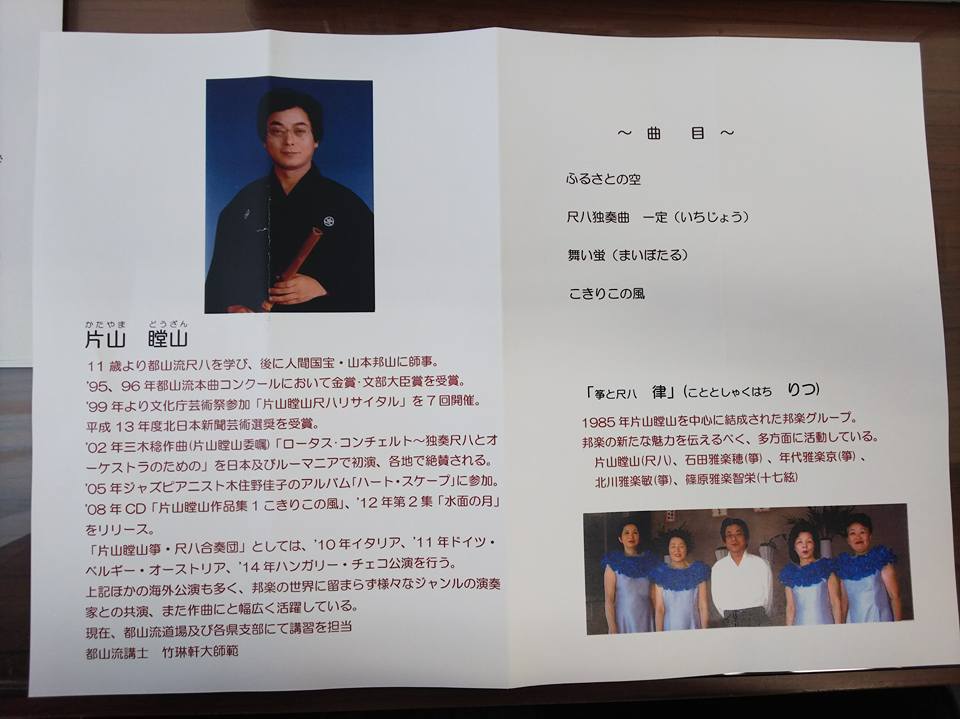 かたやま とうざん
片山 瞠山
11歳より都山流尺八を学び、後に人間国宝・山本邦山に師事。
'95、96年都山流本曲コンクールにおいて金賞・文部大臣賞を受賞。
'99年より文化庁芸術祭参加「片山瞠山尺八リサイタル」を7回開催。
平成13年度北日本新聞芸術選奨を受賞。
'02年三木稔作曲(片山瞠山委嘱)「ロータス・コンチェルト〜独奏尺八とオ
ーケストラのための」を日本及びルーマニアで初演、各地で絶賛される。
'05年ジャズピアニスト木住野佳子のアルバム「ハート・スケープ」に参加。
'08年CD「片山瞠山作品集1こきりこの風」、'12年第2集「水面の月」
をリリース。
「片山瞠山箏・尺八合奏団」としては、'10年イタリア、'11年ドイツ・
ベルギー・オーストリア、'14年ハンガリー・チェコ公演を行う。
上記ほかの海外公演も多く、邦楽の世界に留まらず様々なジャンルの演奏
家との共演、また作曲にと幅広く活躍している。
現在、都山流道場及び各県支部にて講習を担当
都山流講士 竹琳軒大師範
〜 曲 目 〜
ふるさとの空
尺八独奏曲 一定（いちじょう）
舞い蛍（まいぼたる）
こきりこの風
「箏と尺八 律」(こととしゃくはち りつ)
1985年片山瞠山を中心に結成された邦楽グループ。
邦楽の新たな魅力を伝えるべく、多方面に活動している。
片山瞠山(尺八)、石田雅楽穂(箏)、年代雅楽京(箏)、
北川雅楽敏(箏)、篠原雅楽智栄(十七絃)